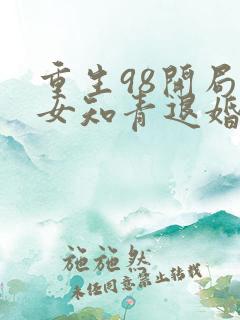 重生98开局
女知青退婚
施施然
未经同意禁止转载